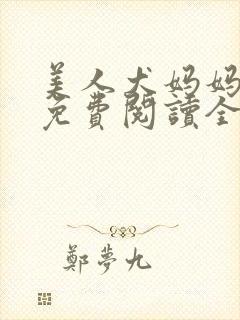 美人犬妈妈
免费閱讀全
鄭夢九